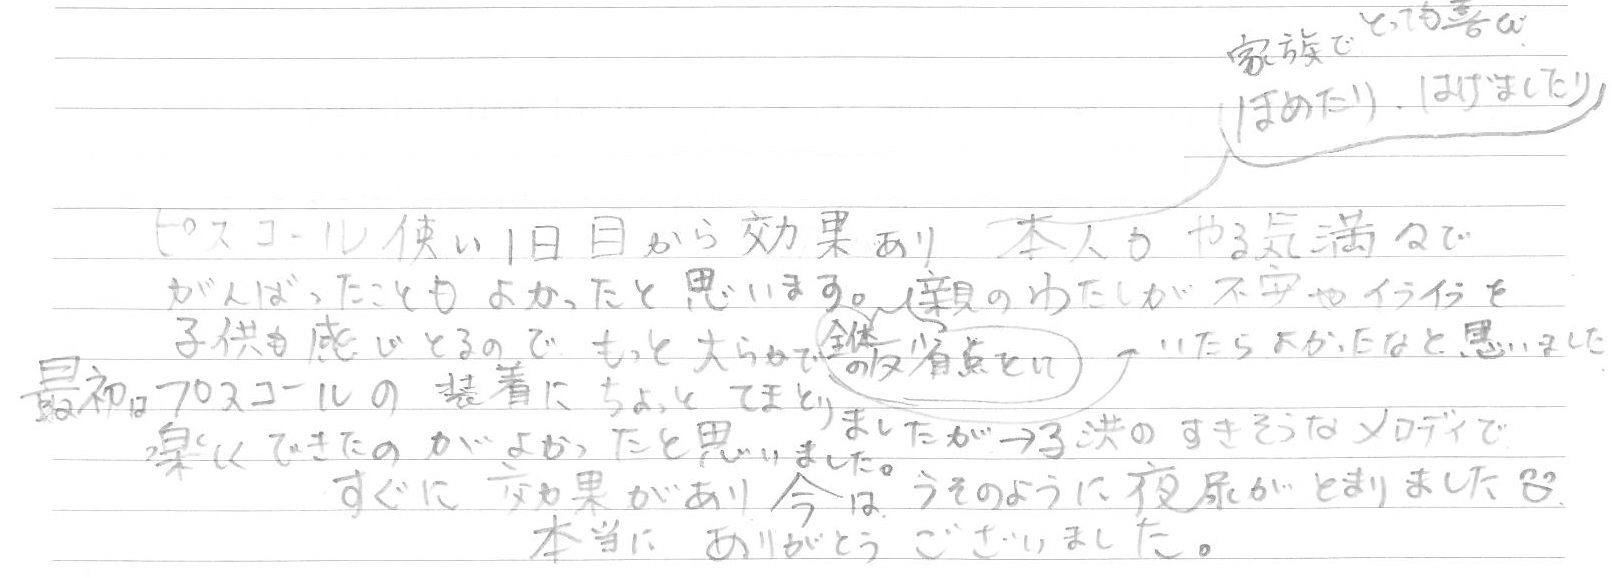 家族で とっても喜び
ほめたり・はげましたり
ピスコール使い1日目から効果あり 本人も やる気満々で
がんばったことも よかったと思います。親のわたしが不安やイライラを
子供も感じとるので もっと大らかで いたらよかったなと思いました
全体の反省点として
最初はプロスコールの装着に ちょっと てまどりましたが→子供のすきそうなメロディで
楽しくできたのがよかったと思いました。
すぐに効果があり今は うそのように夜尿がとまりました
本当に ありがとうございました。